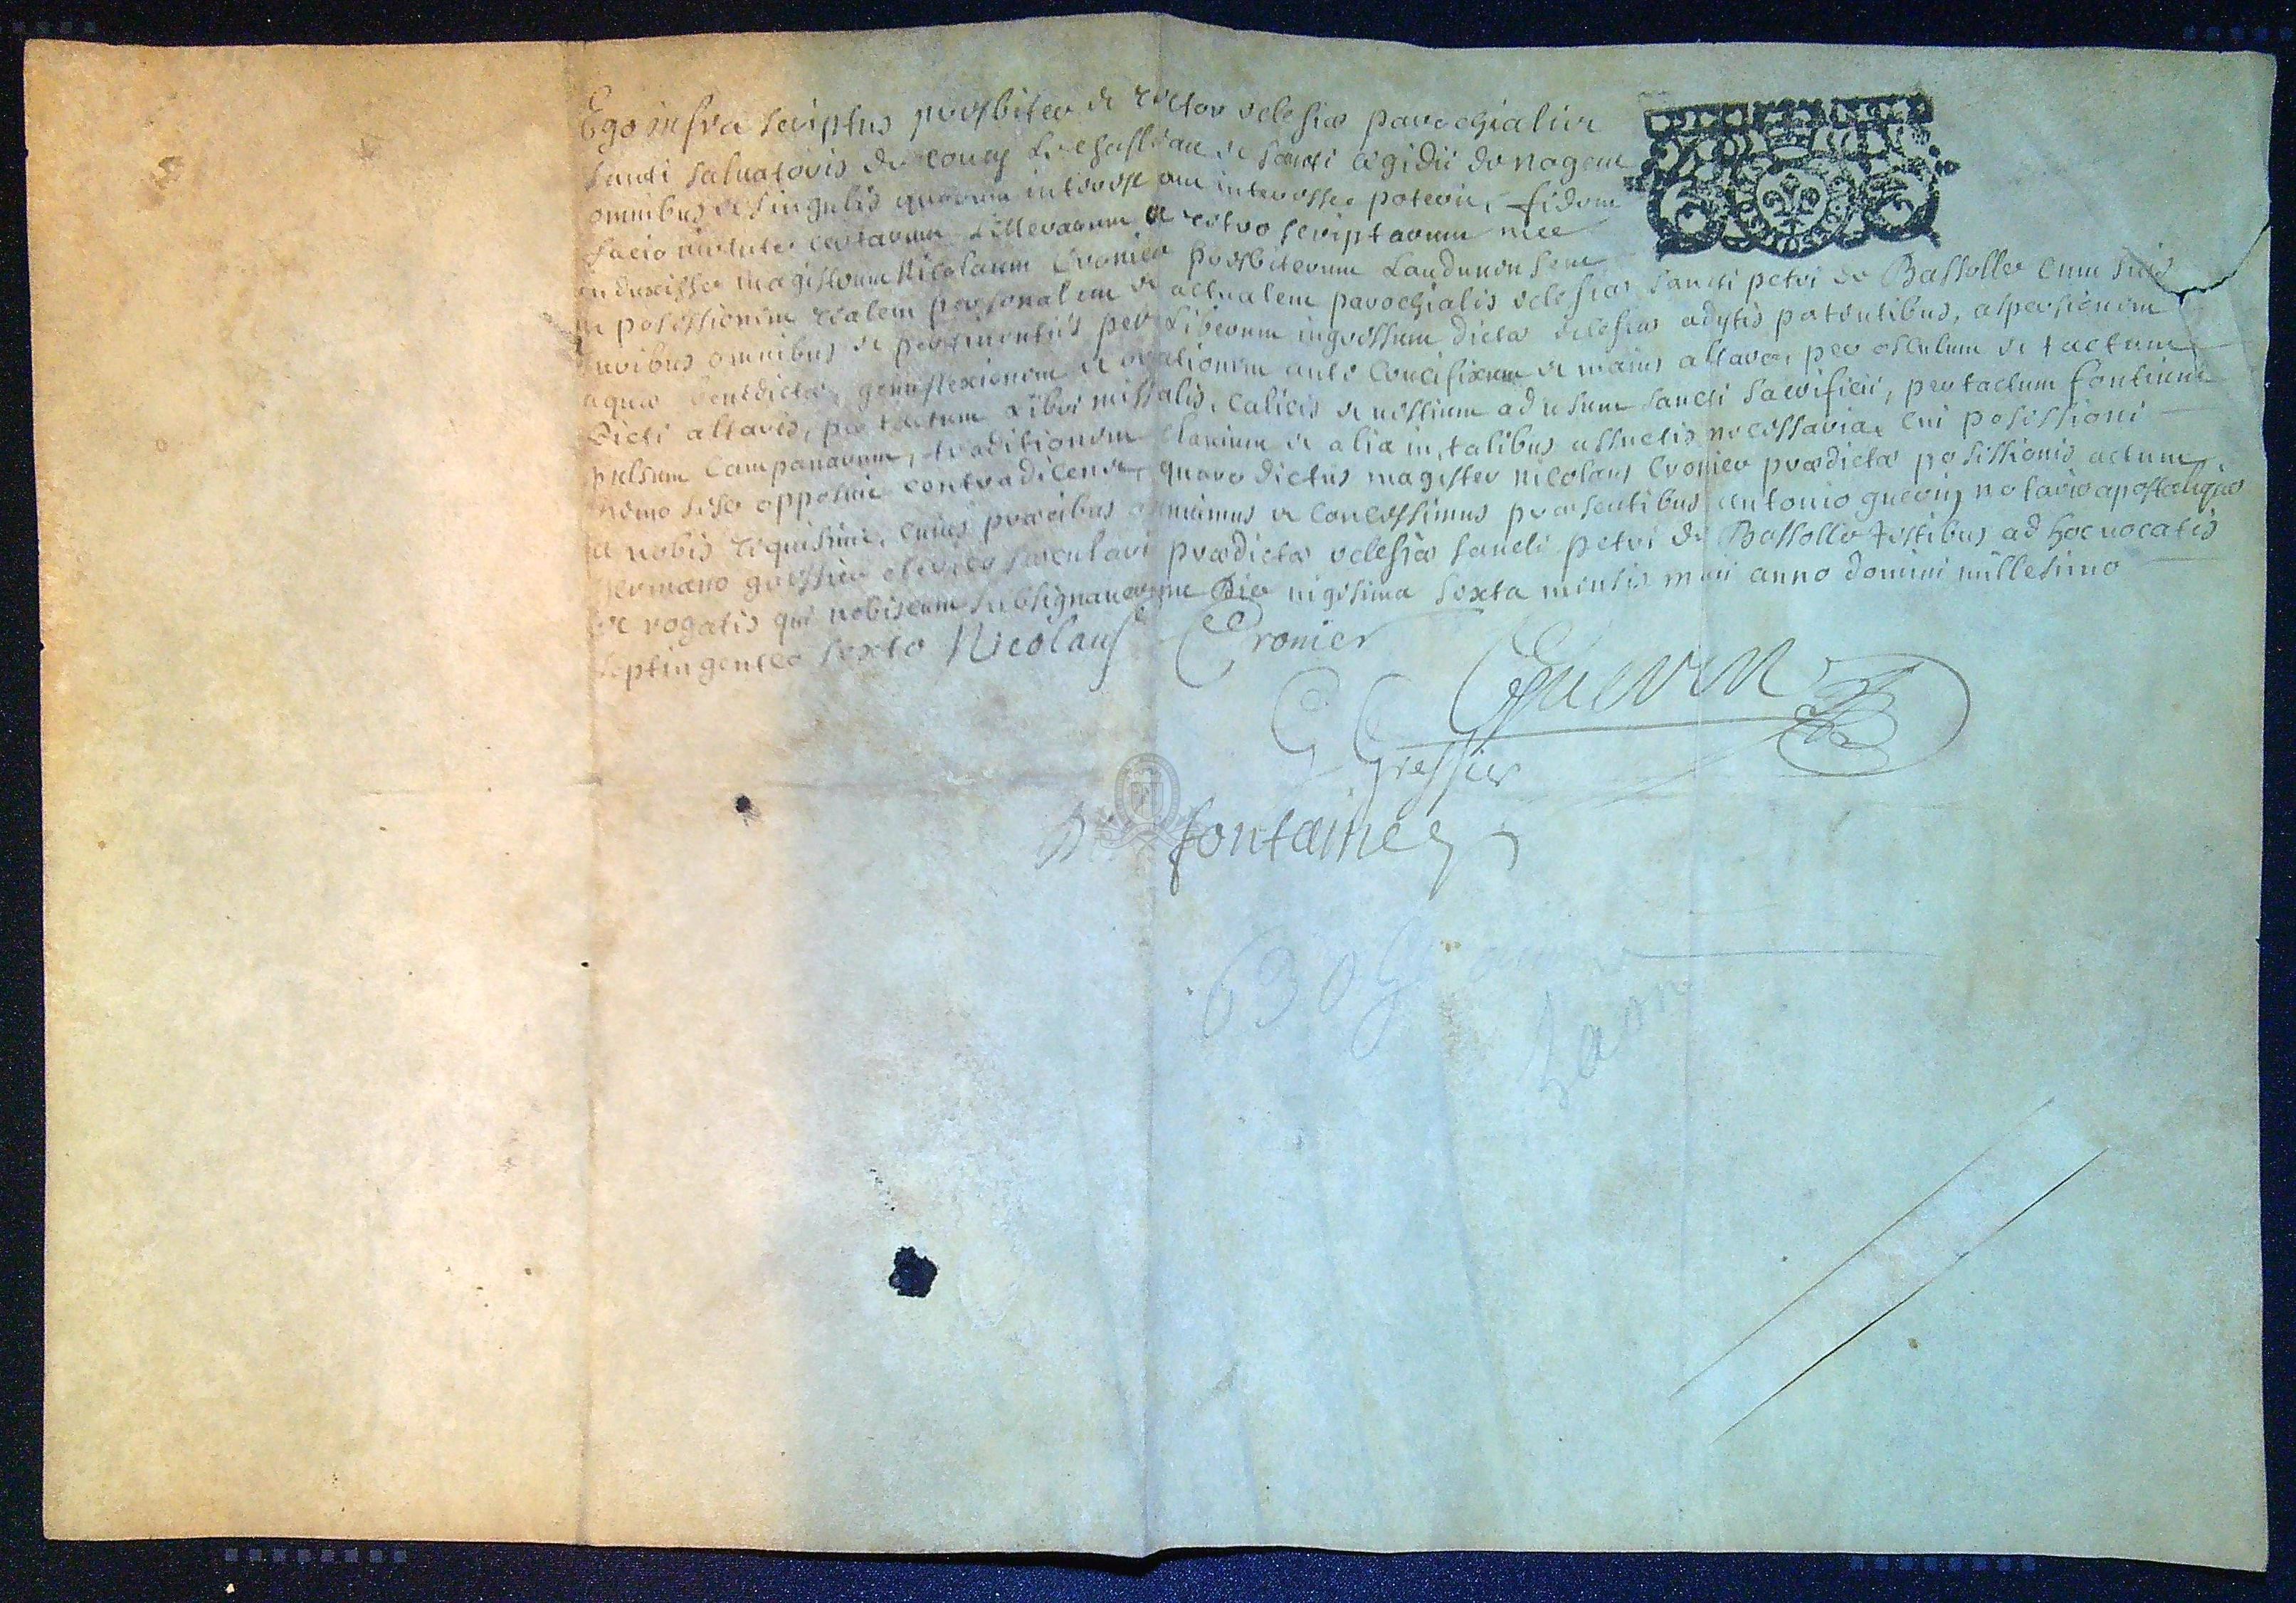 Ego infra scriptus presbiter et rector eclesiæ parochialis
Sancti Salvatoris de Coucy Le chasteau et Sancti ægidii de nogent
omnibus et singulis quorum interest aut interesse poterit, fidem
facio virtute certarum Litterarum a retro scriptarum me
induxisse magistrum Nicolaum Cronier presbiterum Laudunensem
in possessionem realem personalem et actualem parochialis eclesiæ Sancti petri de Bassolle cum suis
iuribus omnibus et pertinentiis per Liberum ingressum dictæ eclesiæ adytis patentibus, aspersionem
aquæ benedictæ, genuflexionem et orationem ante Crucifixum et maius altare, per osculum et tactum
dicti altaris, per tactum Libri missalis, Calicis et vestium ad usum sancti sacrificii, per tactum fontium
pulsum Campanarum, traditionem clavium et alia in talibus assuetis necessaria, Cui possessioni
nemo sese opposuit contradicens, quare dictus magister nicolaus Cronier prædictæ possessionis actum
a nobis requisivit, cuius precibus annuimus et concessimus præsentibus antonio guerin notario apostolico
germano gressier clerico sæculari prædictæ eclesiæ sancti petri de Bassolle testibus ad hoc vocatis
et rogatis qui nobiscum subsignaverunt Die vigesima sexta mensis maii anno domini millesimo
septingentes sexto Nicolaus Cronier
Guerin
G Gressier
De fontaine
630
Laon